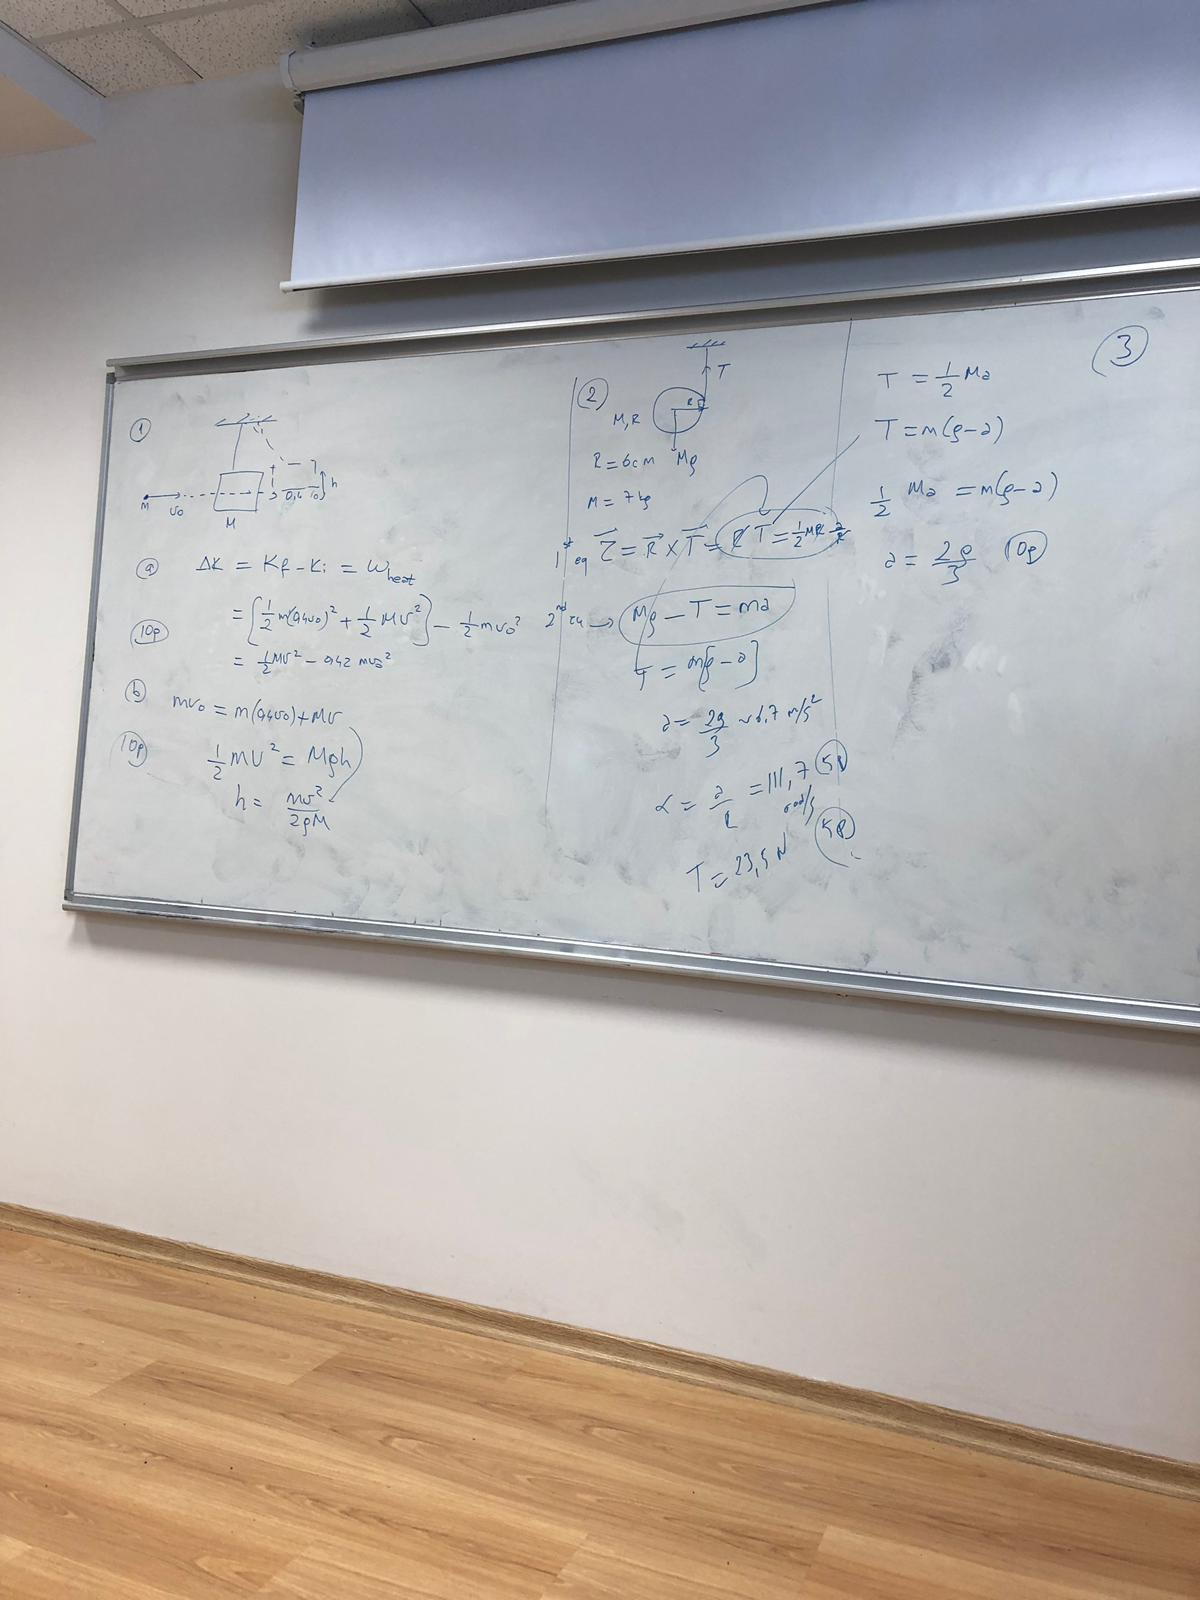 ①
m v₀ M 0,4 v₀ h
ⓐ ΔK = Kf - Ki = Wheat
= [½ m(0,4v₀)² + ½ Mv²] - ½ mv₀²
10p
= ½ Mv² - 0,42 mv₀²
ⓑ mv₀ = m(0,4v₀) + Mv
10p
½ mv² = Mgh
h = mv² / 2gM
②
T
R
M, R
R = 6cm Mg
M = 7kg
1st eq τ⃗ = R⃗ × T⃗ = R T = ½ MR a/R
2nd → Mg - T = ma
T = m[g - a]
a = 2g/3 ~ 6,7 m/s²
α = a/R = 111,7 rad/s 5p
T = 23,5 N 5p
③
T = ½ Ma
T = m(g - a)
½ Ma = m(g - a)
a = 2g/3 10p